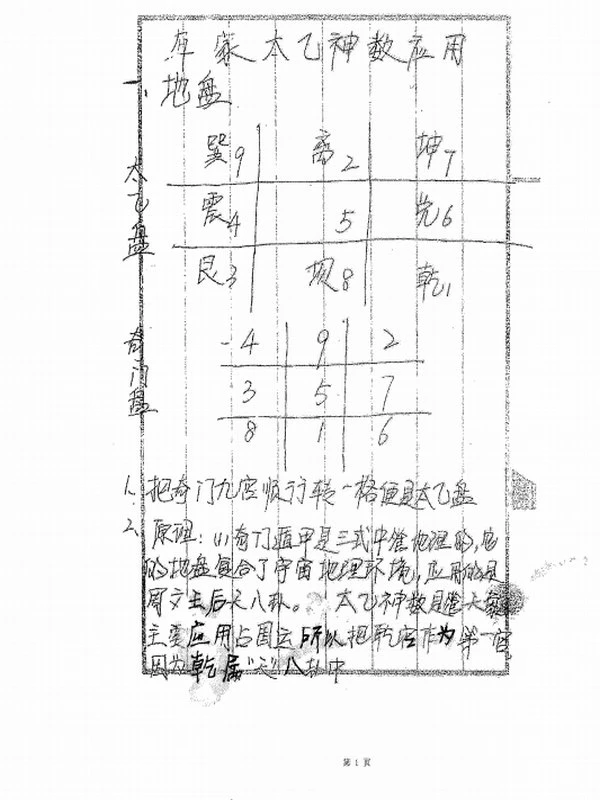 库家太乙神数应用
一、
地盘
太乙盘
巽9 离2 坤7
震4 5 兑6
艮3 坝8 乾1
奇门盘
4 9 2
3 5 7
8 1 6
1、把奇门九宫顺行转一格便是太乙盘
2、原理：(1)奇门遁甲是三式中管地理的，它
的地盘复合了宇宙地理环境，应用的是
周文王后天八卦。 太乙神数是管天象
主要应用占国运所以把乾宫作为第一宫
因为乾属“天”八卦中
第1页